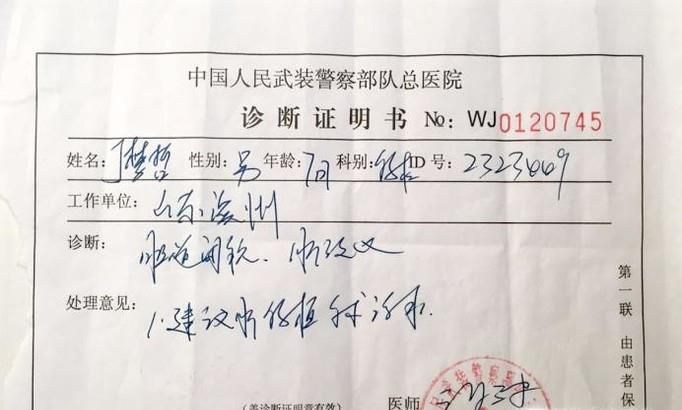 中国人民武装警察部队总医院
诊断证明书 №: WJ0120745
姓名: 梦哲 性别: 男 年龄: 7月 科别: ID号: 2323009
工作单位: 山东滨州
诊断: 胆道闭锁、肝硬化
处理意见: 1. 建议肝移植手术治疗.
第一联 由患者保
医师
(盖诊断证明章有效)